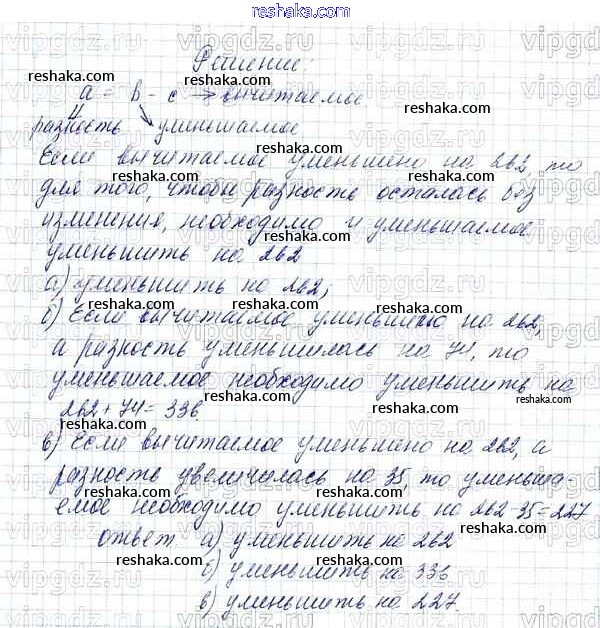 reshaka.com
Решение:
a = b - c → вычитаемое
разность уменьшаемое
Если вычитаемое уменьшено на 262, то
для того, чтобы разность осталась без
изменения, необходимо и уменьшаемое
уменьшить на 262
а) уменьшить на 262;
б) Если вычитаемое уменьшено на 262,
а разность уменьшилась на 74, то
уменьшаемое необходимо уменьшить на
262+74=336
в) Если вычитаемое уменьшено на 262, а
разность увеличилась на 35, то уменьша-
емое необходимо уменьшить на 262-35=227
ответ а) уменьшить на 262
б) уменьшить на 336
в) уменьшить на 227